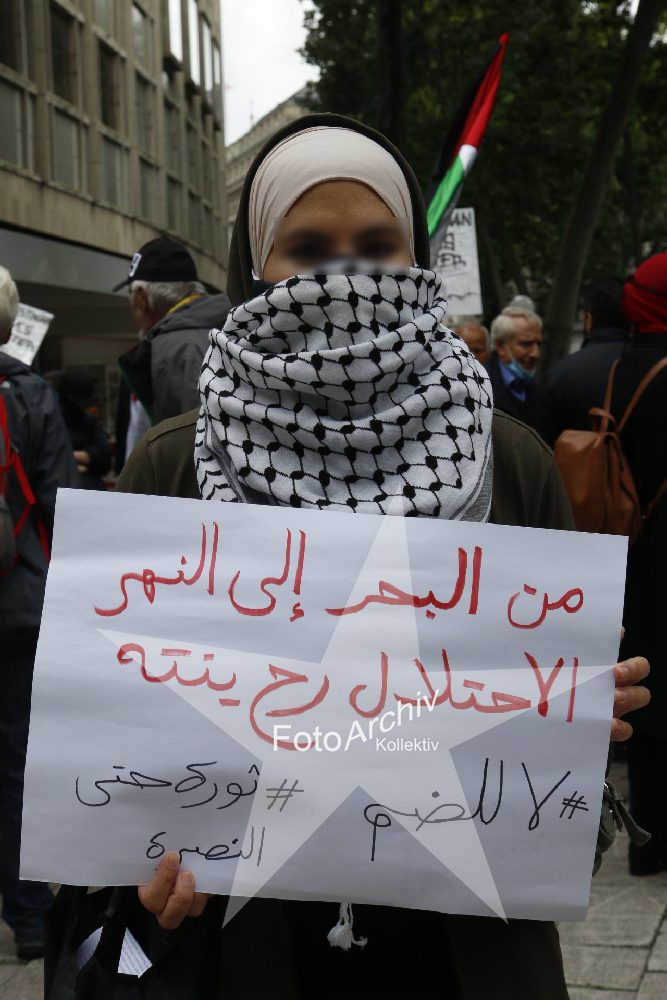 من البحر إلى النهر
الاحتلال رح ينته
#لا للضم
#ثورة حتى
النصرة
FotoArchiv
Kollektiv